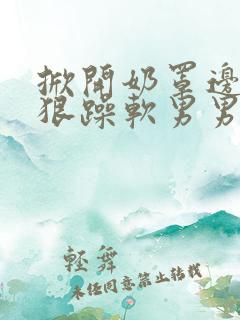 掀開奶罩邊
狠躁軟男男
軽舞
未经同意禁止转载